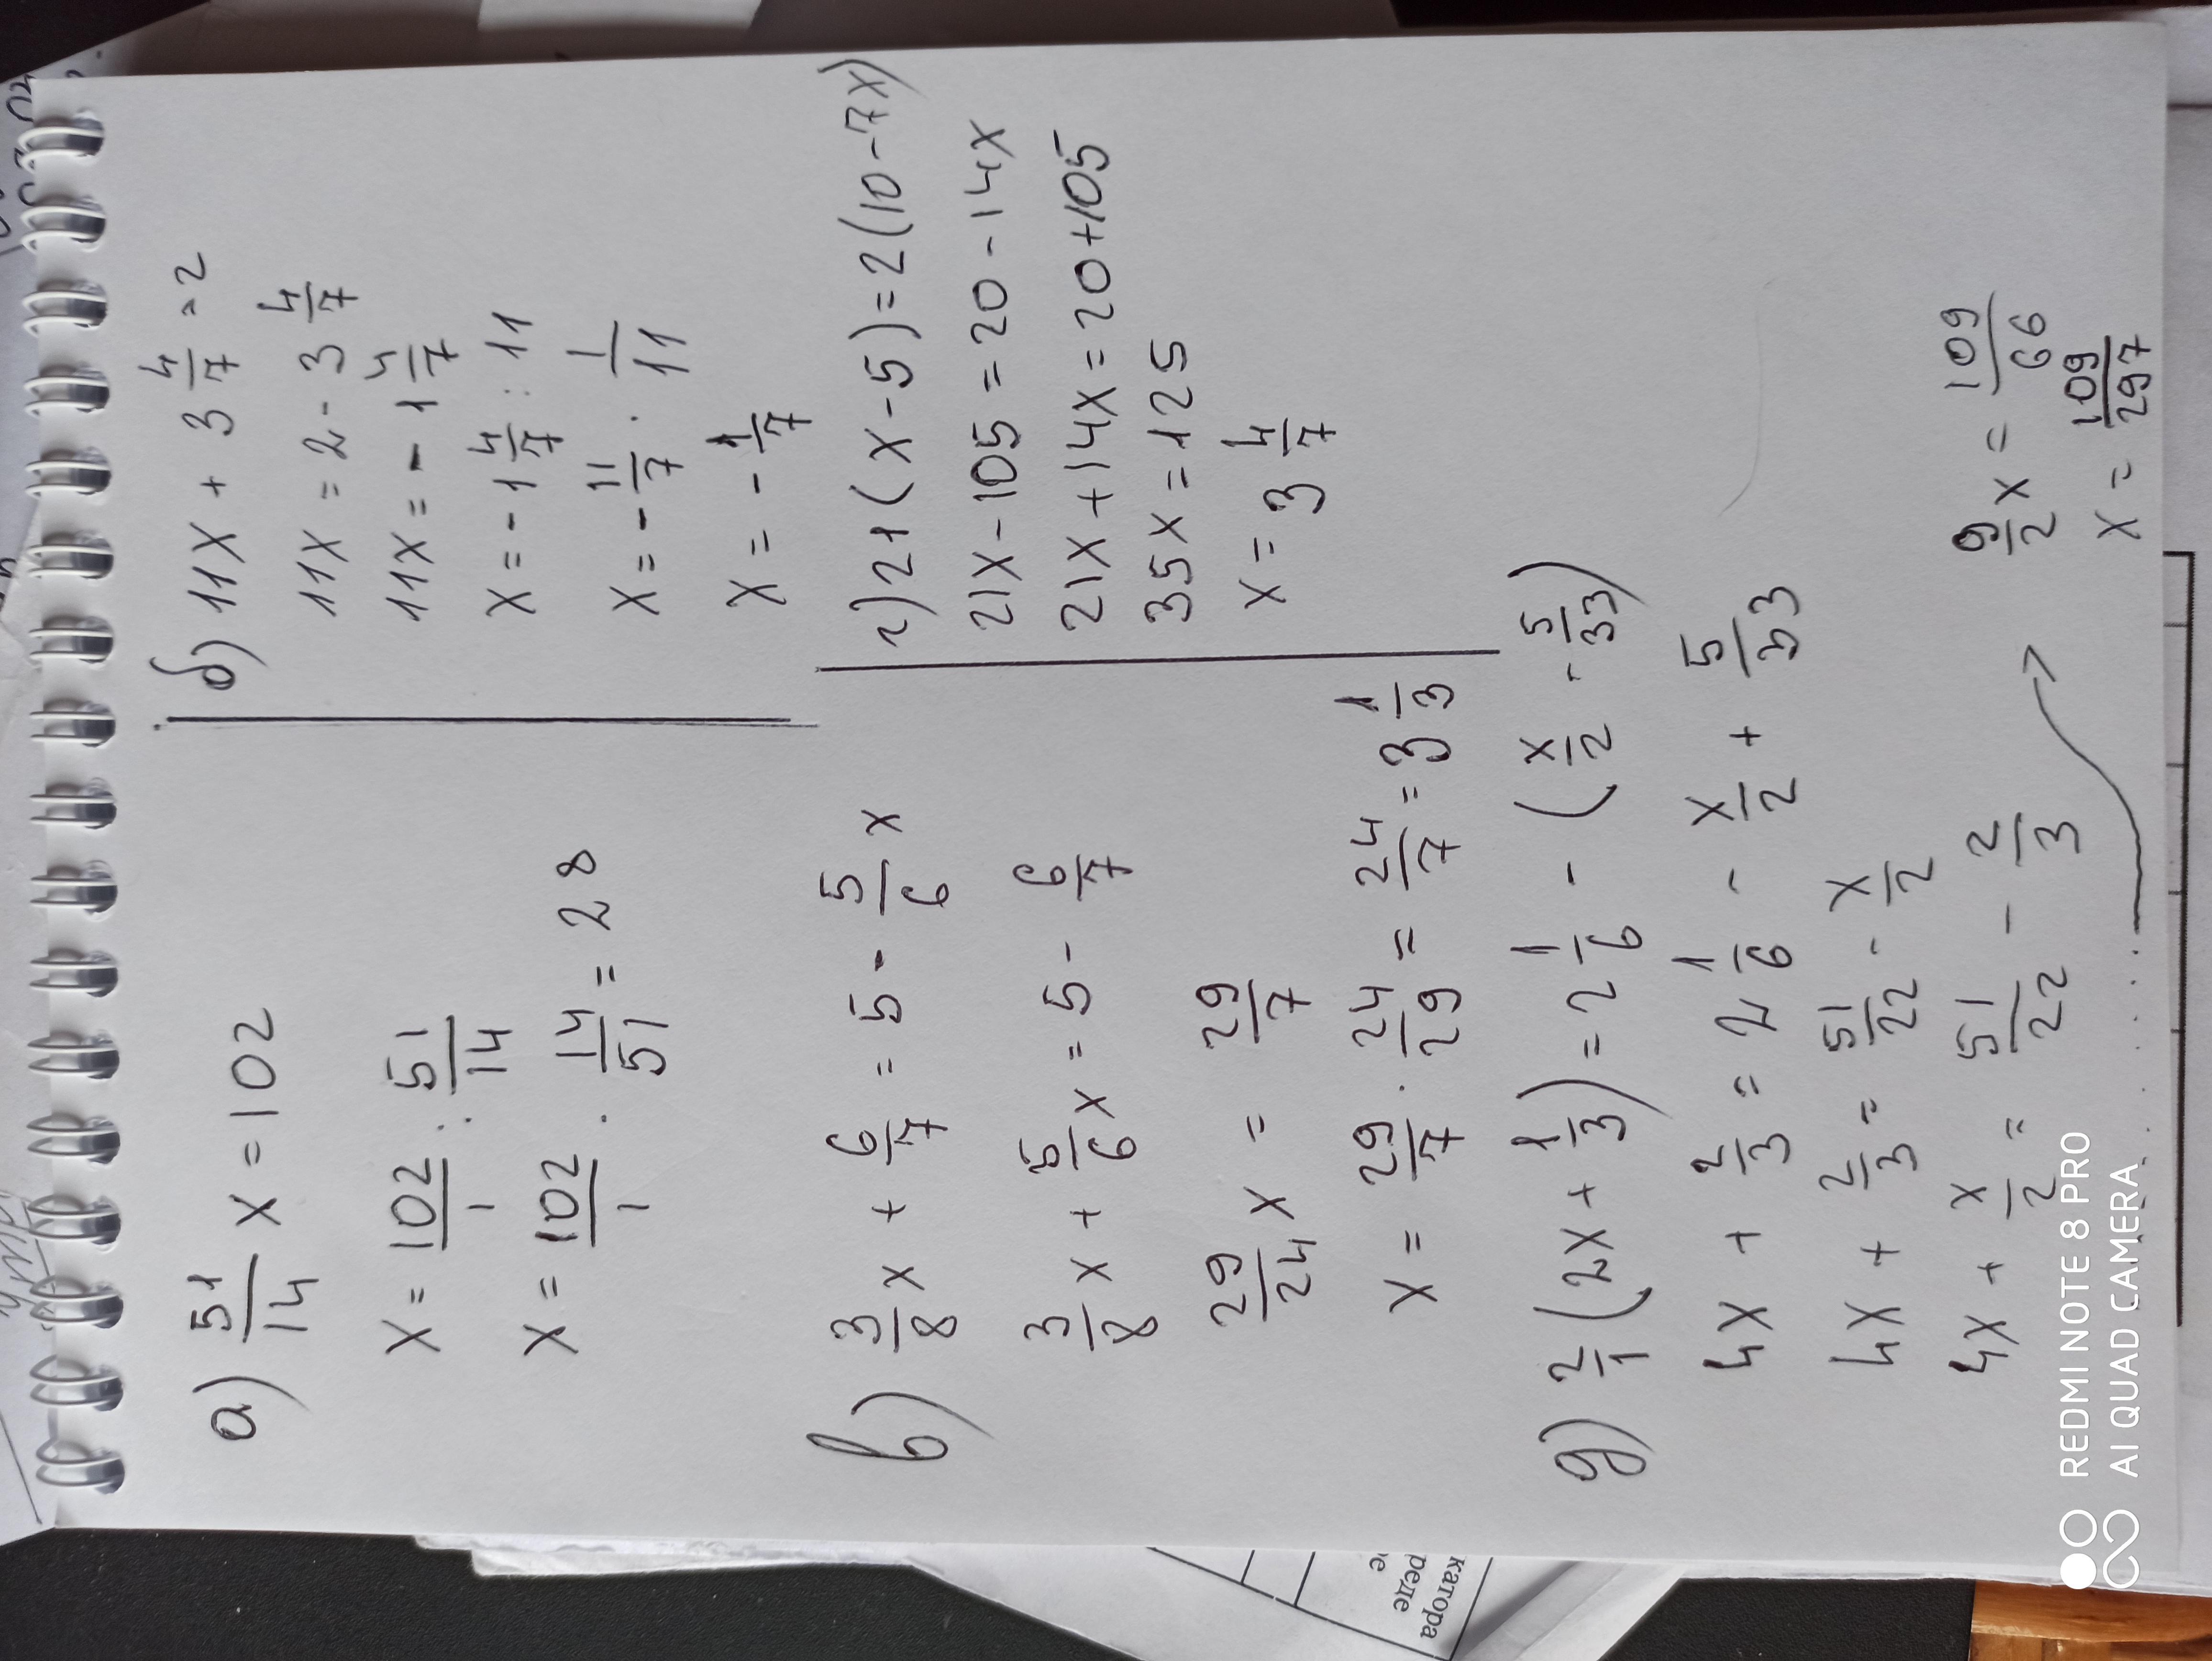 а) 51/14 x = 102
x = 102/1 : 51/14
x = 102/1 · 14/51 = 28
б) 11x + 3 4/7 = 2
11x = 2 - 3 4/7
11x = - 1 4/7
x = - 1 4/7 : 11
x = - 11/7 · 1/11
x = - 1/7
в) 3/8 x + 6/7 = 5 - 5/6 x
3/8 x + 5/6 x = 5 - 6/7
29/24 x = 29/7
x = 29/7 · 24/29 = 24/7 = 3 1/3
г) 21(x-5)=2(10-7x)
21x-105=20-14x
21x+14x=20+105
35x=125
x=3 4/7
д) 2/1 (2x + 1/3) = 2 1/6 - (x/2 - 5/33)
4x + 2/3 = 2 1/6 - x/2 + 5/33
4x + 2/3 = 51/22 - x/2
4x + x/2 = 51/22 - 2/3
9/2 x = 109/66
x = 109/297
катора
реде
е
REDMI NOTE 8 PRO
AI QUAD CAMERA